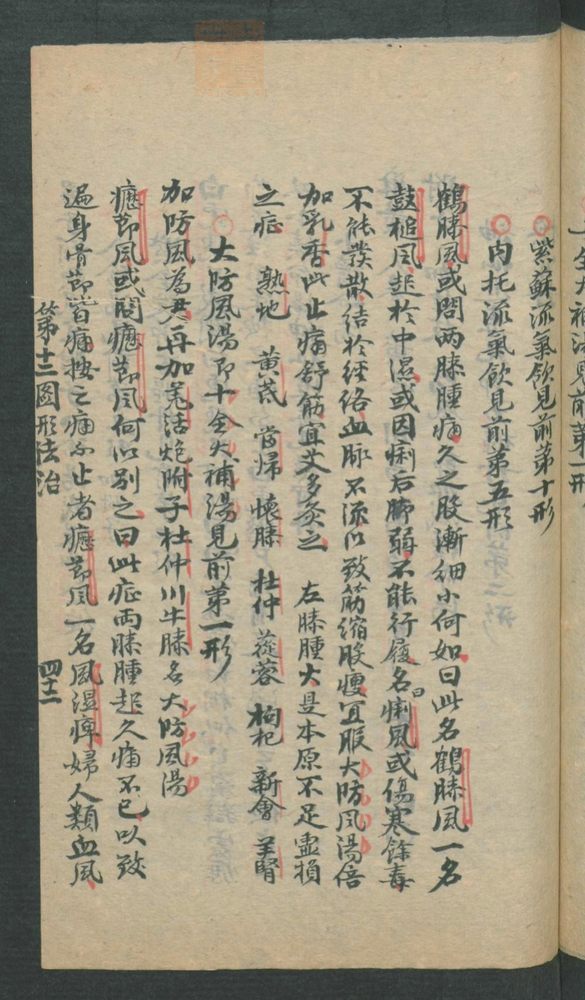 十全大補湯見前第一形
紫蘇流氣飲見前第十形
內托流氣飲見前第五形
鶴膝風或問兩膝腫痛久之股漸細小何如曰此名鶴膝風一名
鼓槌風起於中濕或因痢后脚弱不能行履名曰痢風或傷寒餘毒
不能發散結於經絡血脉不流以致筋縮股瘦宜服大防風湯倍
加乳香此止痛舒筋宜艾多灸之 左膝腫大是本原不足虛損
之症 熟地 黃芪 當歸 懷膝 杜仲 蓯蓉 枸杞 新會 羊腎
大防風湯即十全大補湯見前第一形
加防風為君再加羌活炮附子杜仲川牛膝名大防風湯
癧節風或問癧節風何以別之曰此症兩膝腫起久痛不已以致
遍身骨節皆痛按之痛不止者癧節風一名風濕痺婦人類血風
第十三圖形法治
四十二